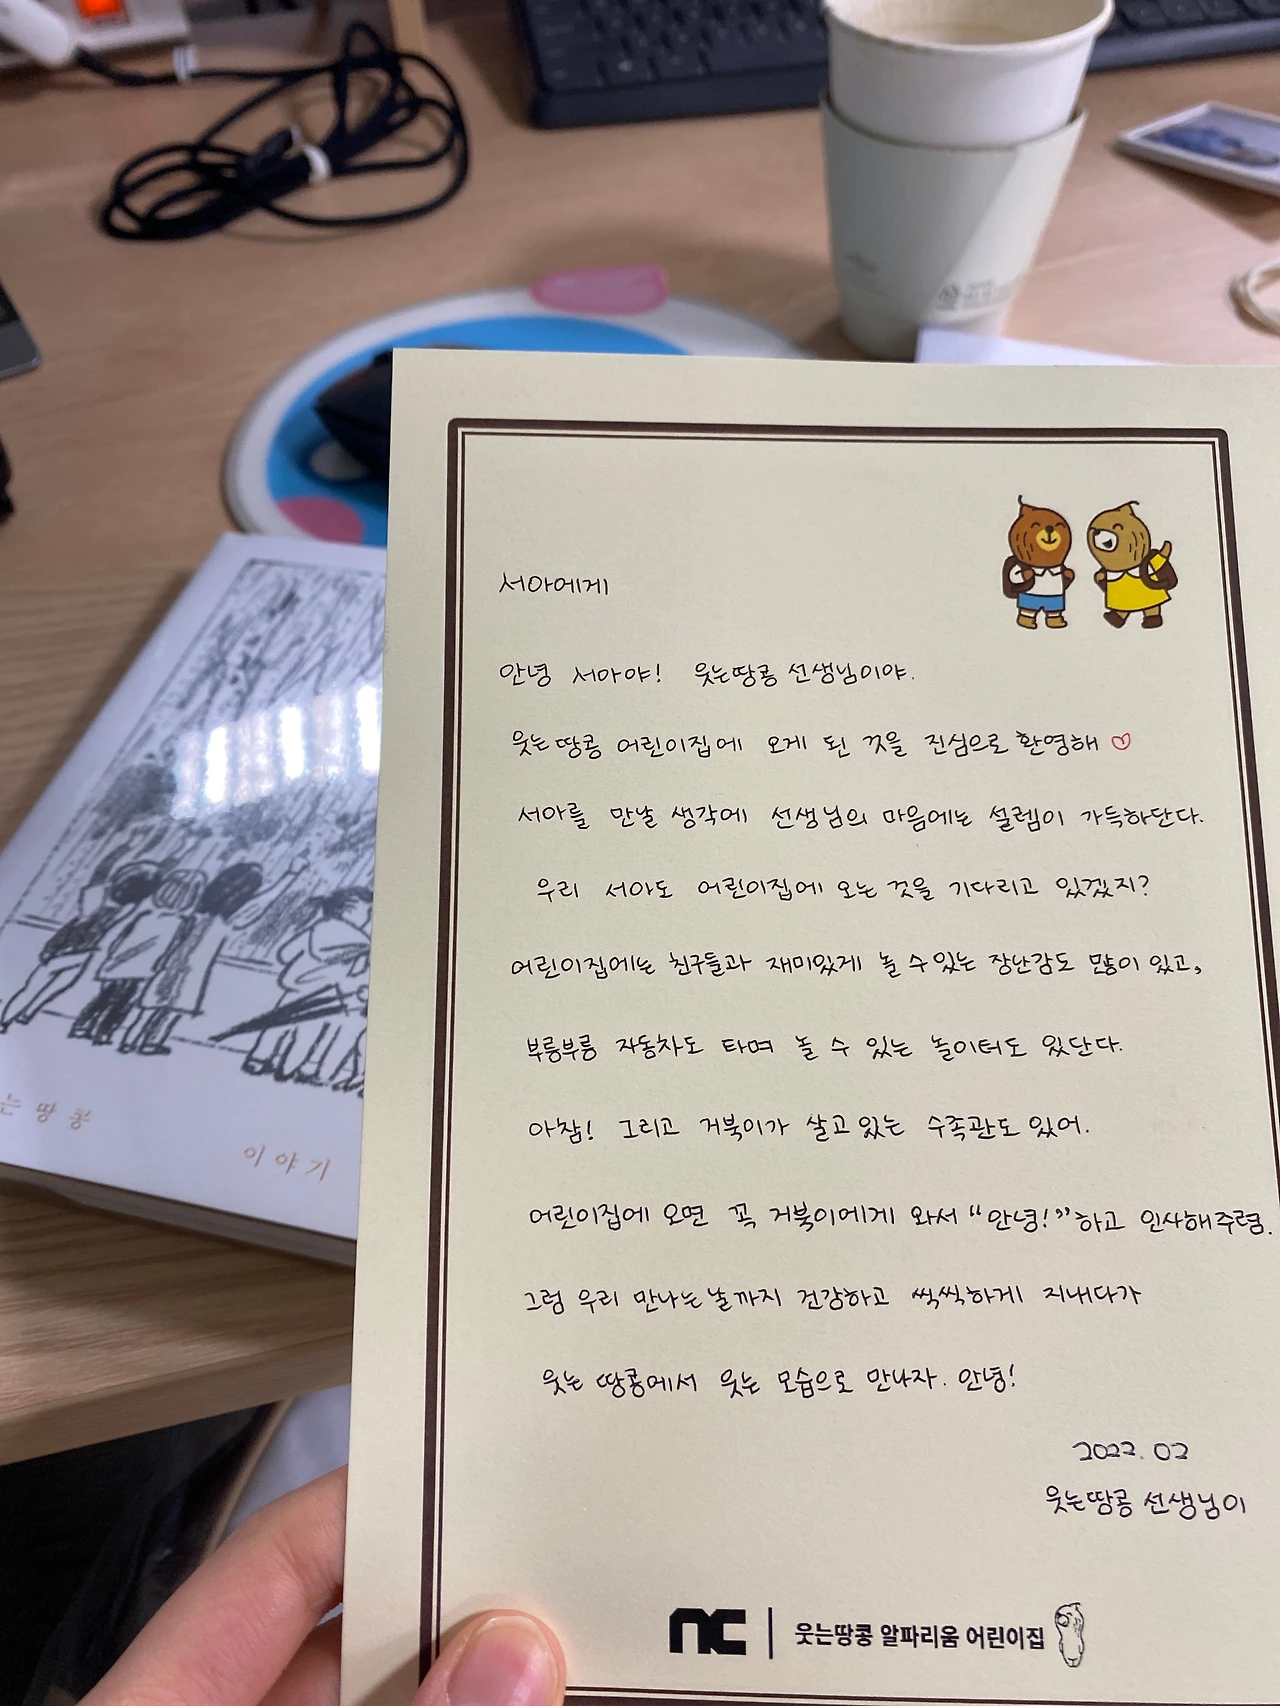 서아에게
안녕 서아야! 웃는땅콩 선생님이야.
웃는땅콩 어린이집에 오게 된 것을 진심으로 환영해♡
서아를 만날 생각에 선생님의 마음에는 설렘이 가득하단다.
우리 서아도 어린이집에 오는 것을 기다리고 있겠지?
어린이집에는 친구들과 재미있게 놀 수 있는 장난감도 많이 있고,
부릉부릉 자동차도 타며 놀 수 있는 놀이터도 있단다.
아참! 그리고 거북이가 살고 있는 수족관도 있어.
어린이집에 오면 꼭 거북이에게 와서 “안녕!”하고 인사해주렴.
그럼 우리 만나는 날까지 건강하고 씩씩하게 지내다가
웃는 땅콩에서 웃는 모습으로 만나자. 안녕!
2022. 02
웃는땅콩 선생님이
NC | 웃는땅콩 알파리움 어린이집
는 땅 콩
이 야 기